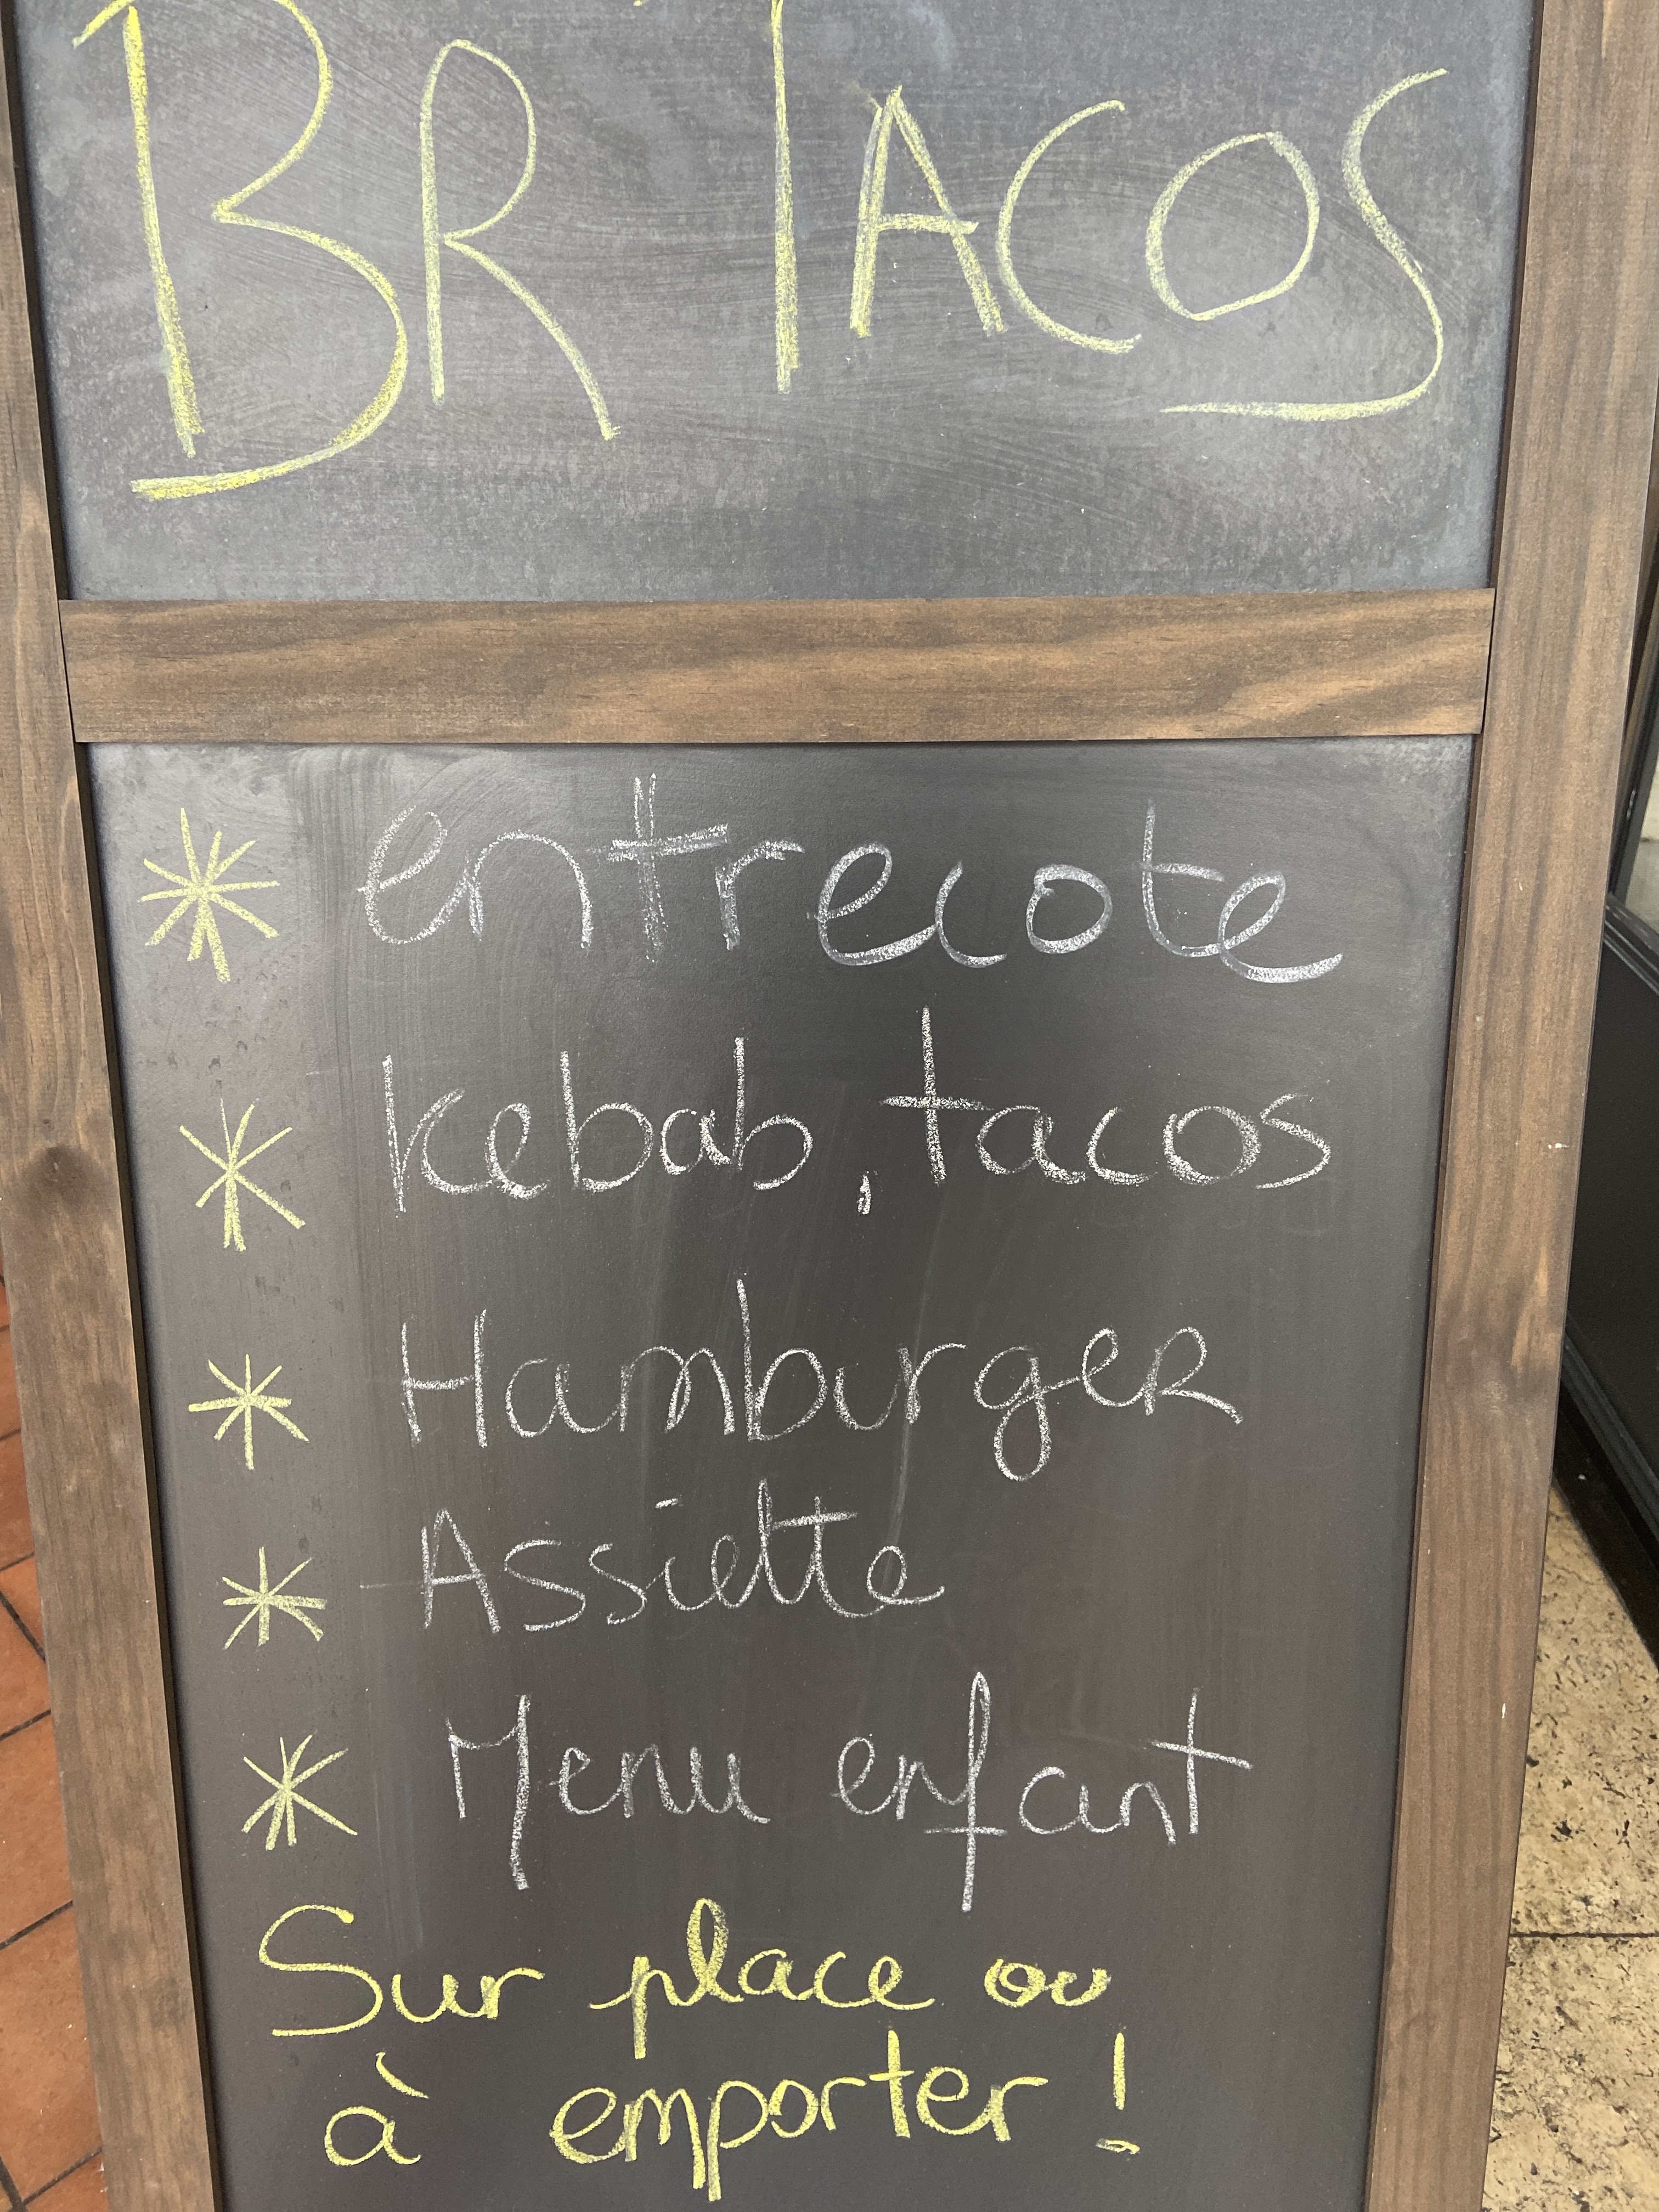 BR TACOS
* entrecote
* kebab, tacos
* Hamburger
* Assiette
* Menu enfant
Sur place ou
à emporter !